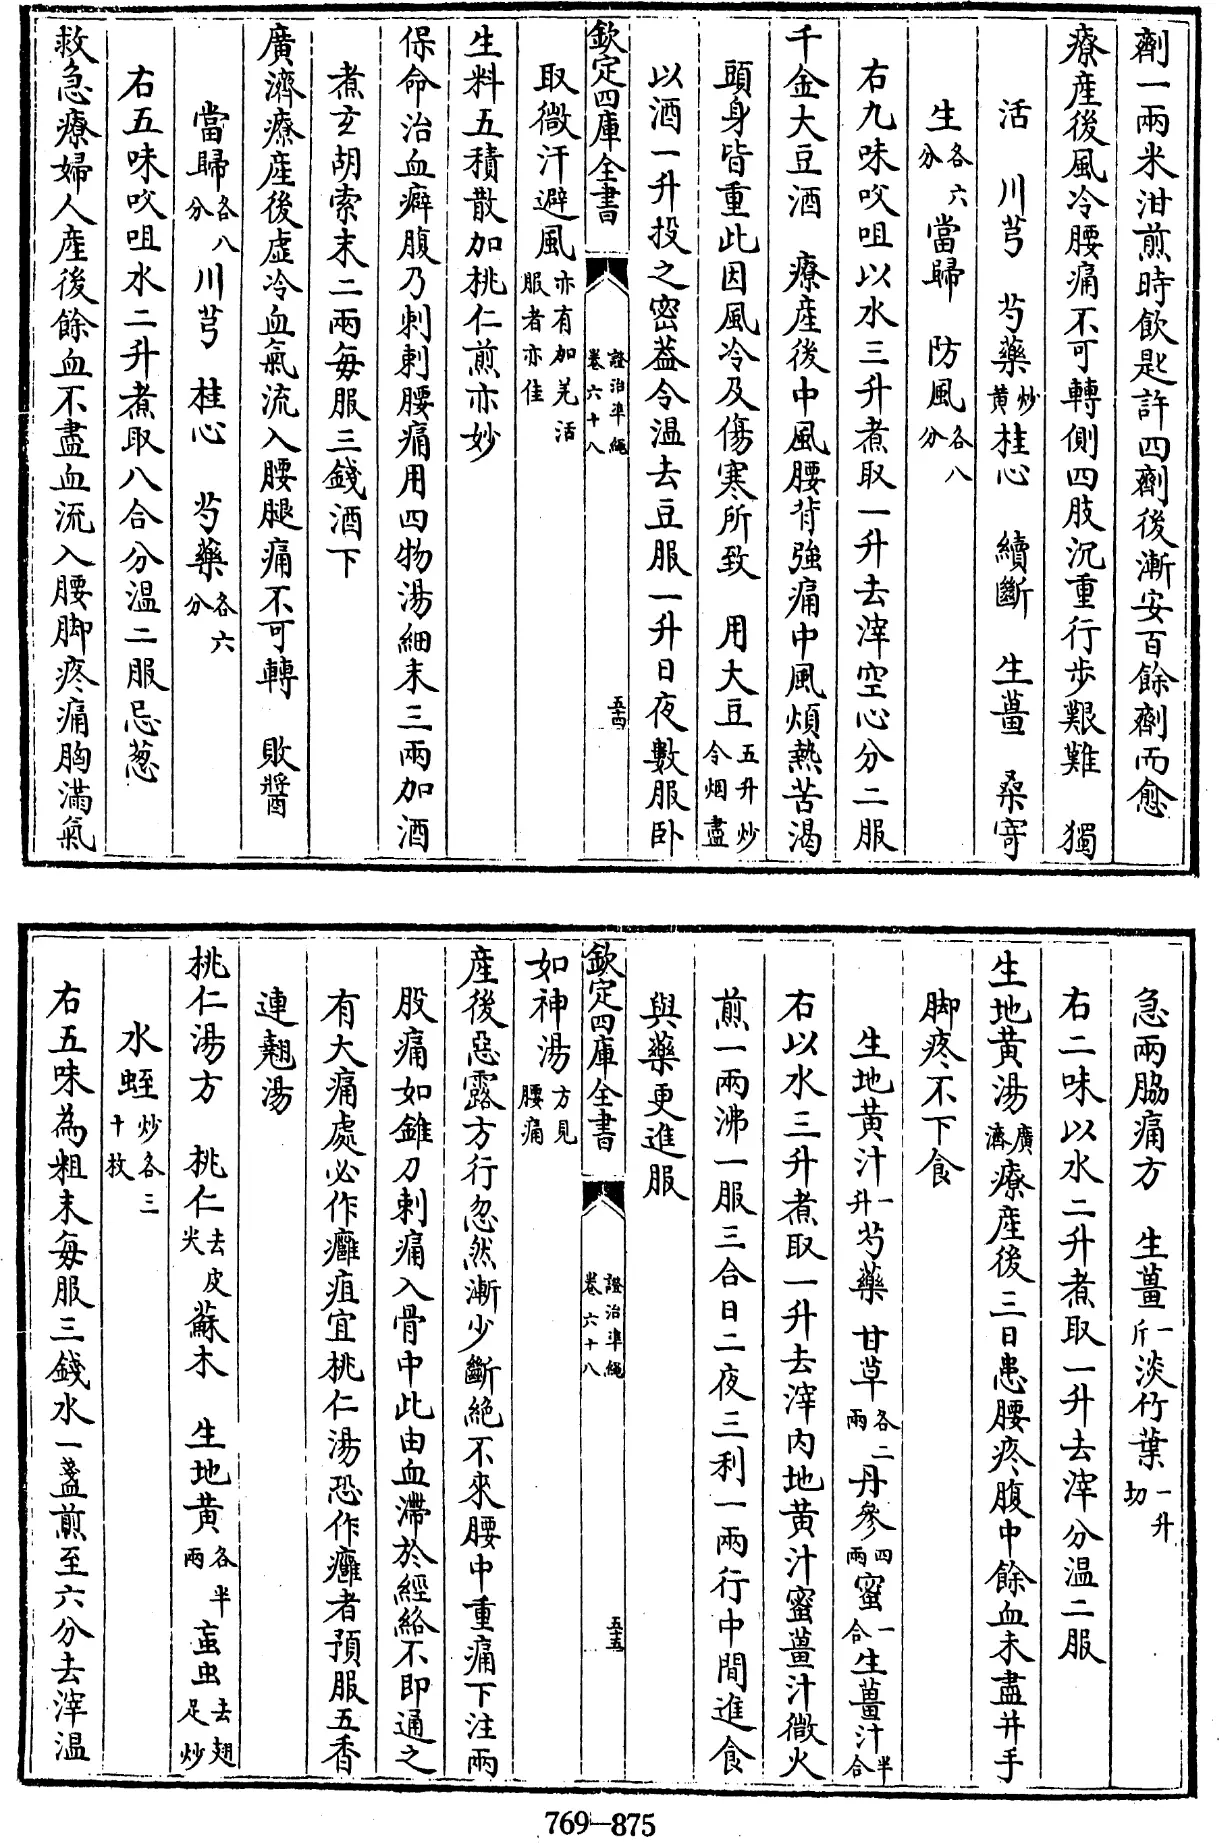 劑一兩米泔煎時飲匙許四劑後漸安百餘劑而愈
療產後風冷腰痛不可轉側四肢沉重行步艱難　獨
活　川芎　芍藥炒黄桂心　續斷　生薑　桑寄
生各六分當歸　防風各八分
右九味㕮咀以水三升煮取一升去滓空心分二服
千金大豆酒　療產後中風腰背強痛中風煩熱苦渴
頭身皆重此因風冷及傷寒所致　用大豆五升炒令烟盡
以酒一升投之密葢令温去豆服一升日夜數服卧
欽定四庫全書　證治準繩卷六十八　五十四
取微汗避風亦有加羌活服者亦佳
生料五積散加桃仁煎亦妙
保命治血癖腹乃刺剌腰痛用四物湯細末三兩加酒
煮玄胡索末二兩每服三錢酒下
廣濟療產後虛冷血氣流入腰腿痛不可轉　敗醬
當歸各八分川芎　桂心　芍藥各六分
右五味㕮咀水二升煮取八合分温二服忌葱
救急療婦人產後餘血不盡血流入腰脚疼痛胸滿氣
急兩脇痛方　生薑一斤淡竹葉一升切
右二味以水二升煮取一升去滓分温二服
生地黄湯廣濟療產後三日患腰疼腹中餘血未盡并手
脚疼不下食
生地黄汁一升芍藥　甘草各二兩丹參四兩蜜一合生薑汁半合
右以水三升煮取一升去滓内地黄汁蜜薑汁微火
煎一兩沸一服三合日二夜三利一兩行中間進食
與藥更進服
欽定四庫全書　證治準繩卷六十八　五十五
如神湯方見腰痛
產後惡露方行忽然漸少斷絶不來腰中重痛下注兩
股痛如錐刀刺痛入骨中此由血滯於經絡不即通之
有大痛處必作癰疽宜桃仁湯恐作癰者預服五香
連翹湯
桃仁湯方　桃仁去皮尖蘇木　生地黄各半兩䖟虫去翅足炒
水蛭炒各三十枚
右五味為粗末每服三錢水一盞煎至六分去滓温
769—875